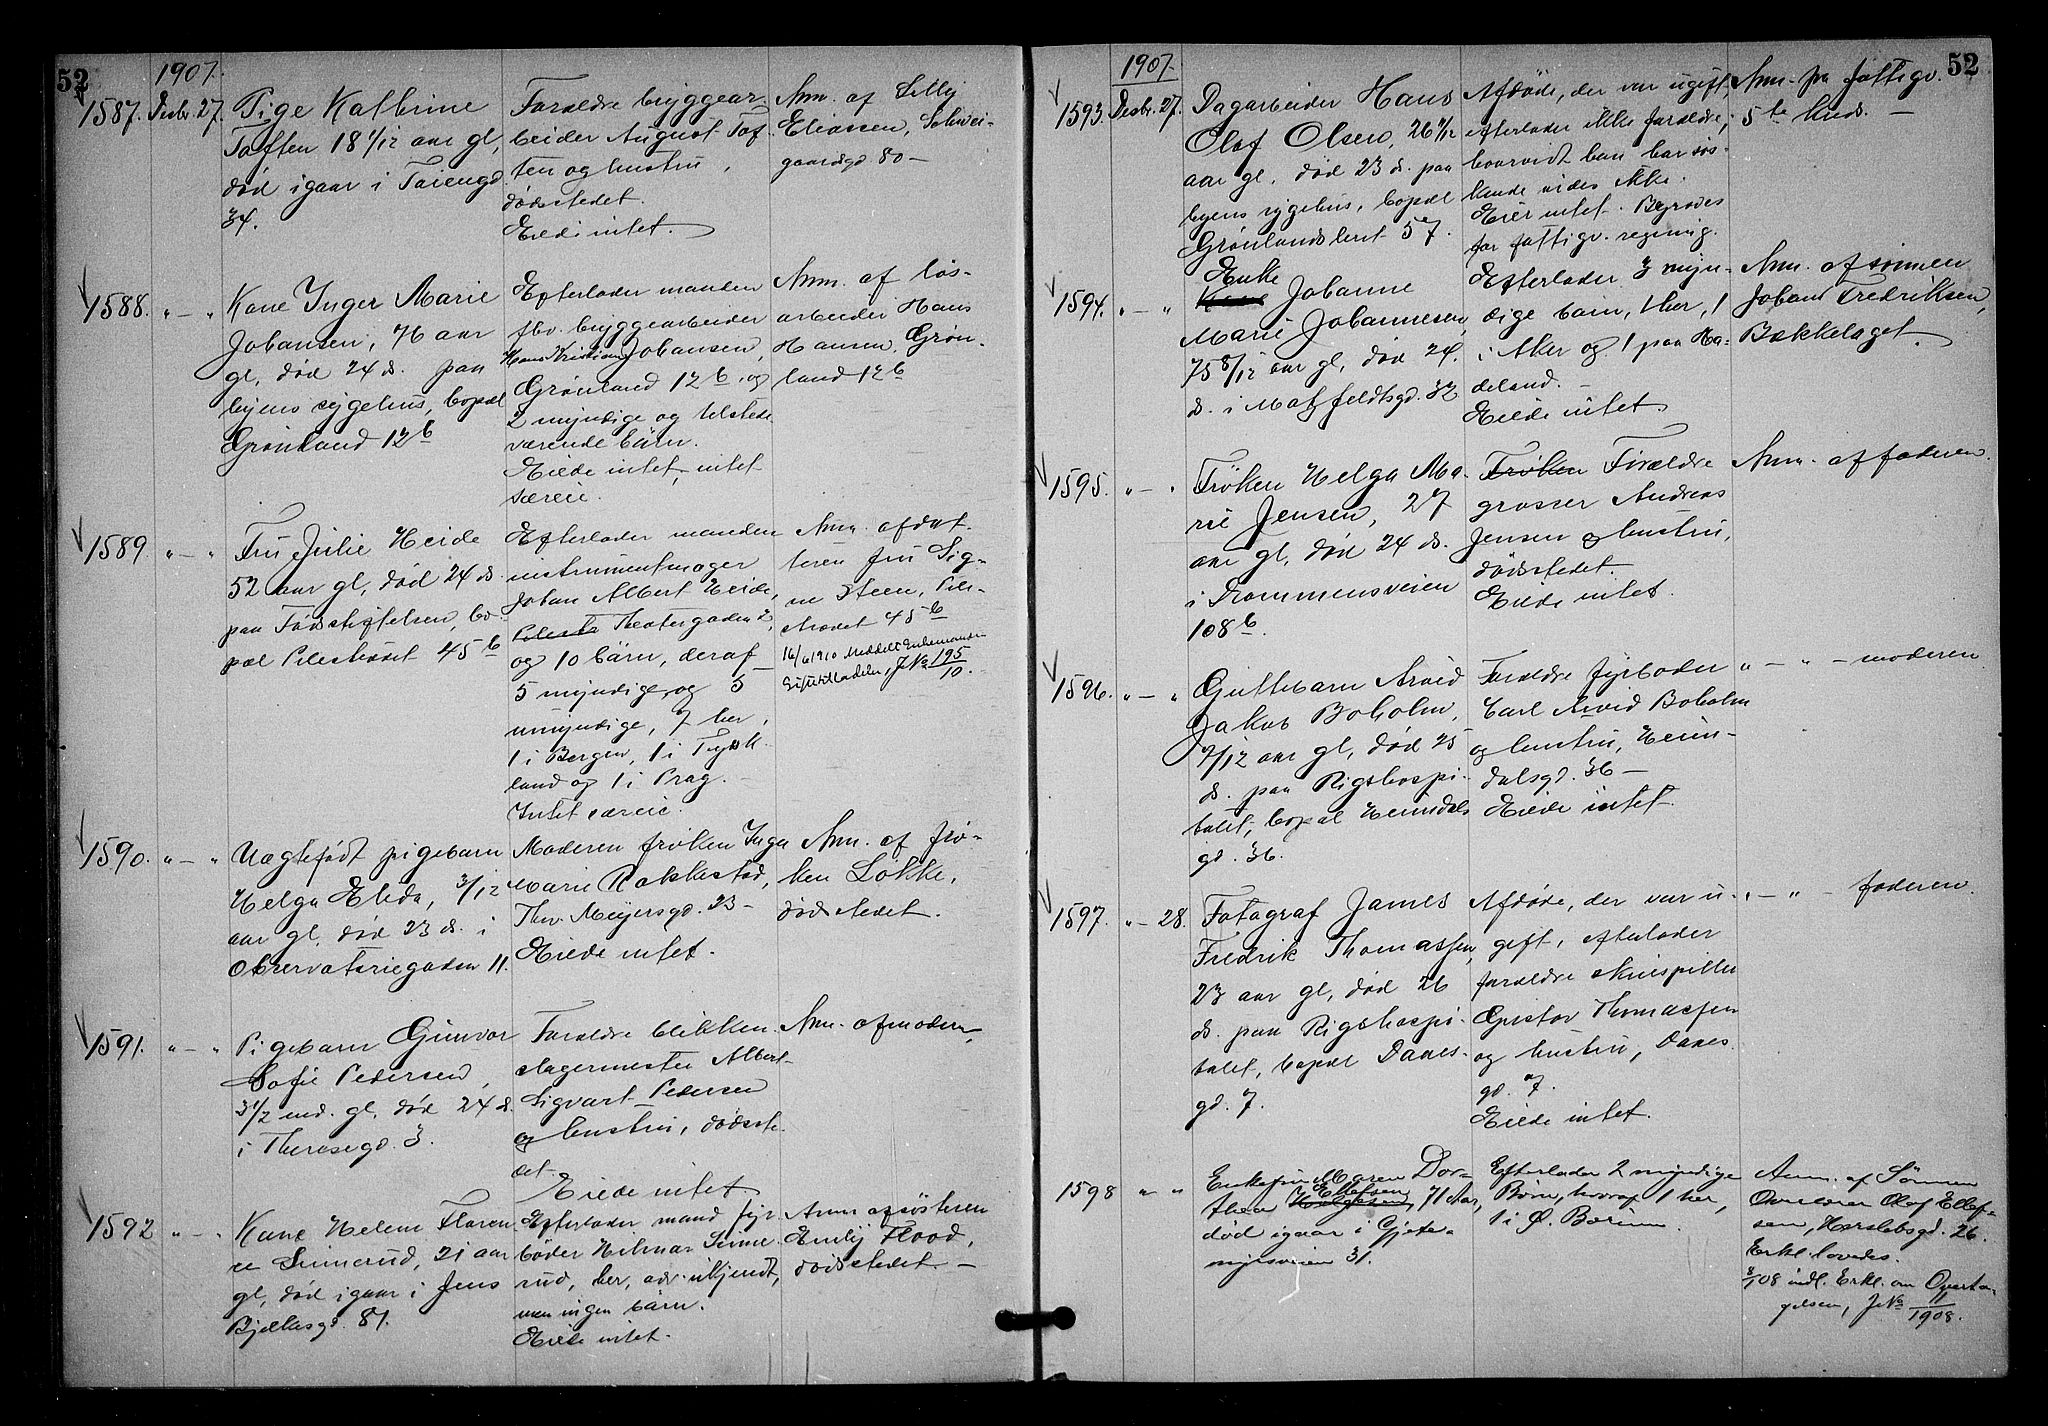 52
1907.
1587. Desbr. 27. Pige Kathrine
Toften 18 1/12 aar gl,
død igaar i Tøiengd
34.
Forældre bryggear-
beider August Tof-
ten og hustru,
dødsstedet.
Eiede intet.
Anm. af Lilly
Eliassen, Schwei-
gaardsgd 80 –
1588. " – " Kone Inger Marie
Johansen, 76 aar
gl, død 24 ds. paa
byens sygehus, bopæl
Grønland 12 b
Efterlader manden
fhv. bryggearbeider
Hans Kristian Johansen,
Grønland 12 b, og
2 myndige og tilstede
værende børn.
Eiede intet, intet
særeie.
Anm. af løs-
arbeider Hans
Hansen, Grøn-
land 12 b
1589. " – " Fru Julie Heide
52 aar gl, død 24 ds.
paa Fødselsstiftelsen, bo-
pæl Pilestrædet 45 b
Efterlader manden
instrumentmager
Johan Albert Heide,
Theatergaden 2,
og 10 børn, deraf
5 myndige og 5
umyndige, 7 her,
1 i Bergen, 1 i Tysk-
land og 1 i Prag. –
Intet særeie.
Anm. af dat-
teren fru Sig-
ne Steen, Pile-
strædet 45 b
16/6 1910 Meddelt Enkemanden
J No 195/10. –
1590. " – " Uægtefødt pigebarn
Helga Elida, 3/12
aar gl, død 23 ds. i
Observatoriegaden 11.
Moderen frøken Inga
Marie Rakkestad,
Thv. Meyersgd. 23 –
Eiede intet.
Anm. af frø-
ken Løkke,
dødsstedet.
1591. " – " Pigebarn Gunvor
Sofie Pedersen,
3 1/2 md. gl, død 24 ds.
i Theresegd. 3.
Forældre blikken-
slagermester Albert
Sigvart Pedersen
og hustru, dødsste-
det.
Eiede intet
Anm. af moderen,
1592 " – " Kone Helene Floren-
ce Simerud, 21 aar
gl, død igaar i Jens
Bjelkesgd. 81.
Efterlader mand fyr-
bøder Hilmar Sime-
rud, her, adr. ukjendt,
men ingen børn.
Eiede intet.
Anm af søsteren
Emily Flood,
dødsstedet. –
52
1907.
1593. Desbr. 27. Dagarbeider Hans
Olaf Olsen, 26 4/12
aar gl, død 23 ds. paa
byens sygehus, bopæl
Grønlandsleret 57.
Afdøde, der var ugift,
efterlader ikke forældre,
hvorvidt han har søs-
kende vides ikke.
Eier intet. Begraves
for fattigv. regning.
Anm. fra fattigv.
5te kreds. –
1594. " – " Enke
Johanne
Marie Johannesen,
75 8/12 aar gl, død 24.
ds. i Motzfeldtsgd. 32
Efterlader 3 myn-
dige børn, 1 her, 1
i Aker og 1 paa Ha-
deland. –
Eiede intet.
Anm. af sønnen
Johan Fredriksen,
Bækkelaget.
1595. " – " Frøken Helga Ma-
rie Jensen, 27
aar gl, død 24 ds.
i Drammensveien
108 b.
Frøken Forældre
grosser Andreas
Jensen og hustru,
dødsstedet.
Eiede intet.
Anm. af faderen.
1596. " – " Guttebarn Arvid
Jakob Boholm,
7/12 aar gl, død 25
ds. paa Rigshospi-
talet, bopæl Heimdals
gd. 36.
Forældre fyrbøder
Carl Arvid Boholm
og hustru, Heim-
dalsgd. 36 –
Eiede intet
" – " – moderen
1597. " – 28. Fotograf James
Fredrik Thomassen,
23 aar gl, død 26
ds. paa Rigshospi-
talet, bopæl Daaes-
gd. 7.
Afdøde, der var u-
gift, efterlader
forældre skuespiller
Gustav Thomassen
og hustru, Daaes
gd. 7.
Eiede intet.
" – " – faderen.
1598 " " Enkefru Maren Dor-
thea Ellefsen, 71 Aar,
død igaar i Gjete-
myrsveien 31.
Efterlader 2 myndige
Børn, hvoraf 1 her,
1 i Ø. Bærum.
Anm. af Sønnen
Olaf Ellef-
sen, Herslebsgd. 26.
Erkl. lovedes.
3/1 08 indl. Erkl. om Overta-
gelsen, J No 11/1908.